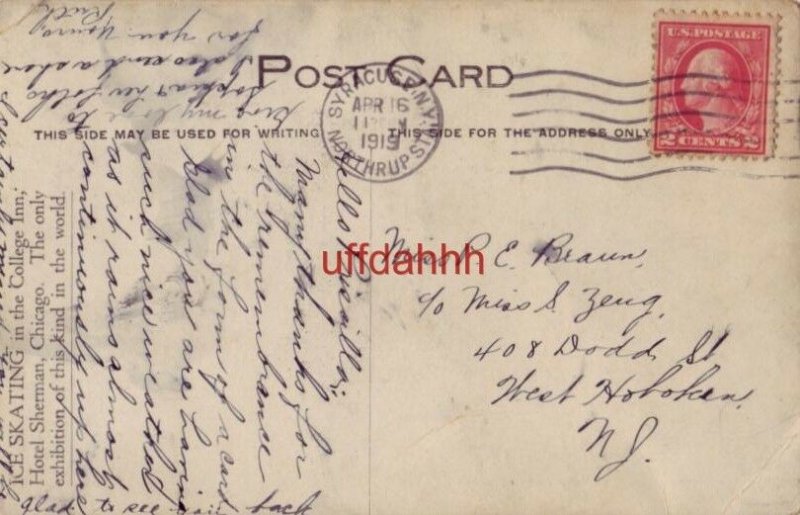 POST CARD
THIS SIDE MAY BE USED FOR WRITING
THIS SIDE FOR THE ADDRESS ONLY
U.S. POSTAGE
2 CENTS 2
SYRACUSE, N.Y.
APR 16
11
1919
NORTHRUP ST.
Miss P. E. Braun,
c/o Miss S. Zeug,
408 Dodd St
West Hoboken,
N J.
uffdahhh
ICE SKATING in the College Inn,
Hotel Sherman, Chicago. The only
exhibition of this kind in the world.
Hello Priscilla:
Many thanks for
the remembrance
in the form of a card
Glad you are having
such nice weather
as it rains almost
continuously up here
glad to see you back
Give my love to
Sophia & new folks
I also send a share
for you. Yours
Ruth